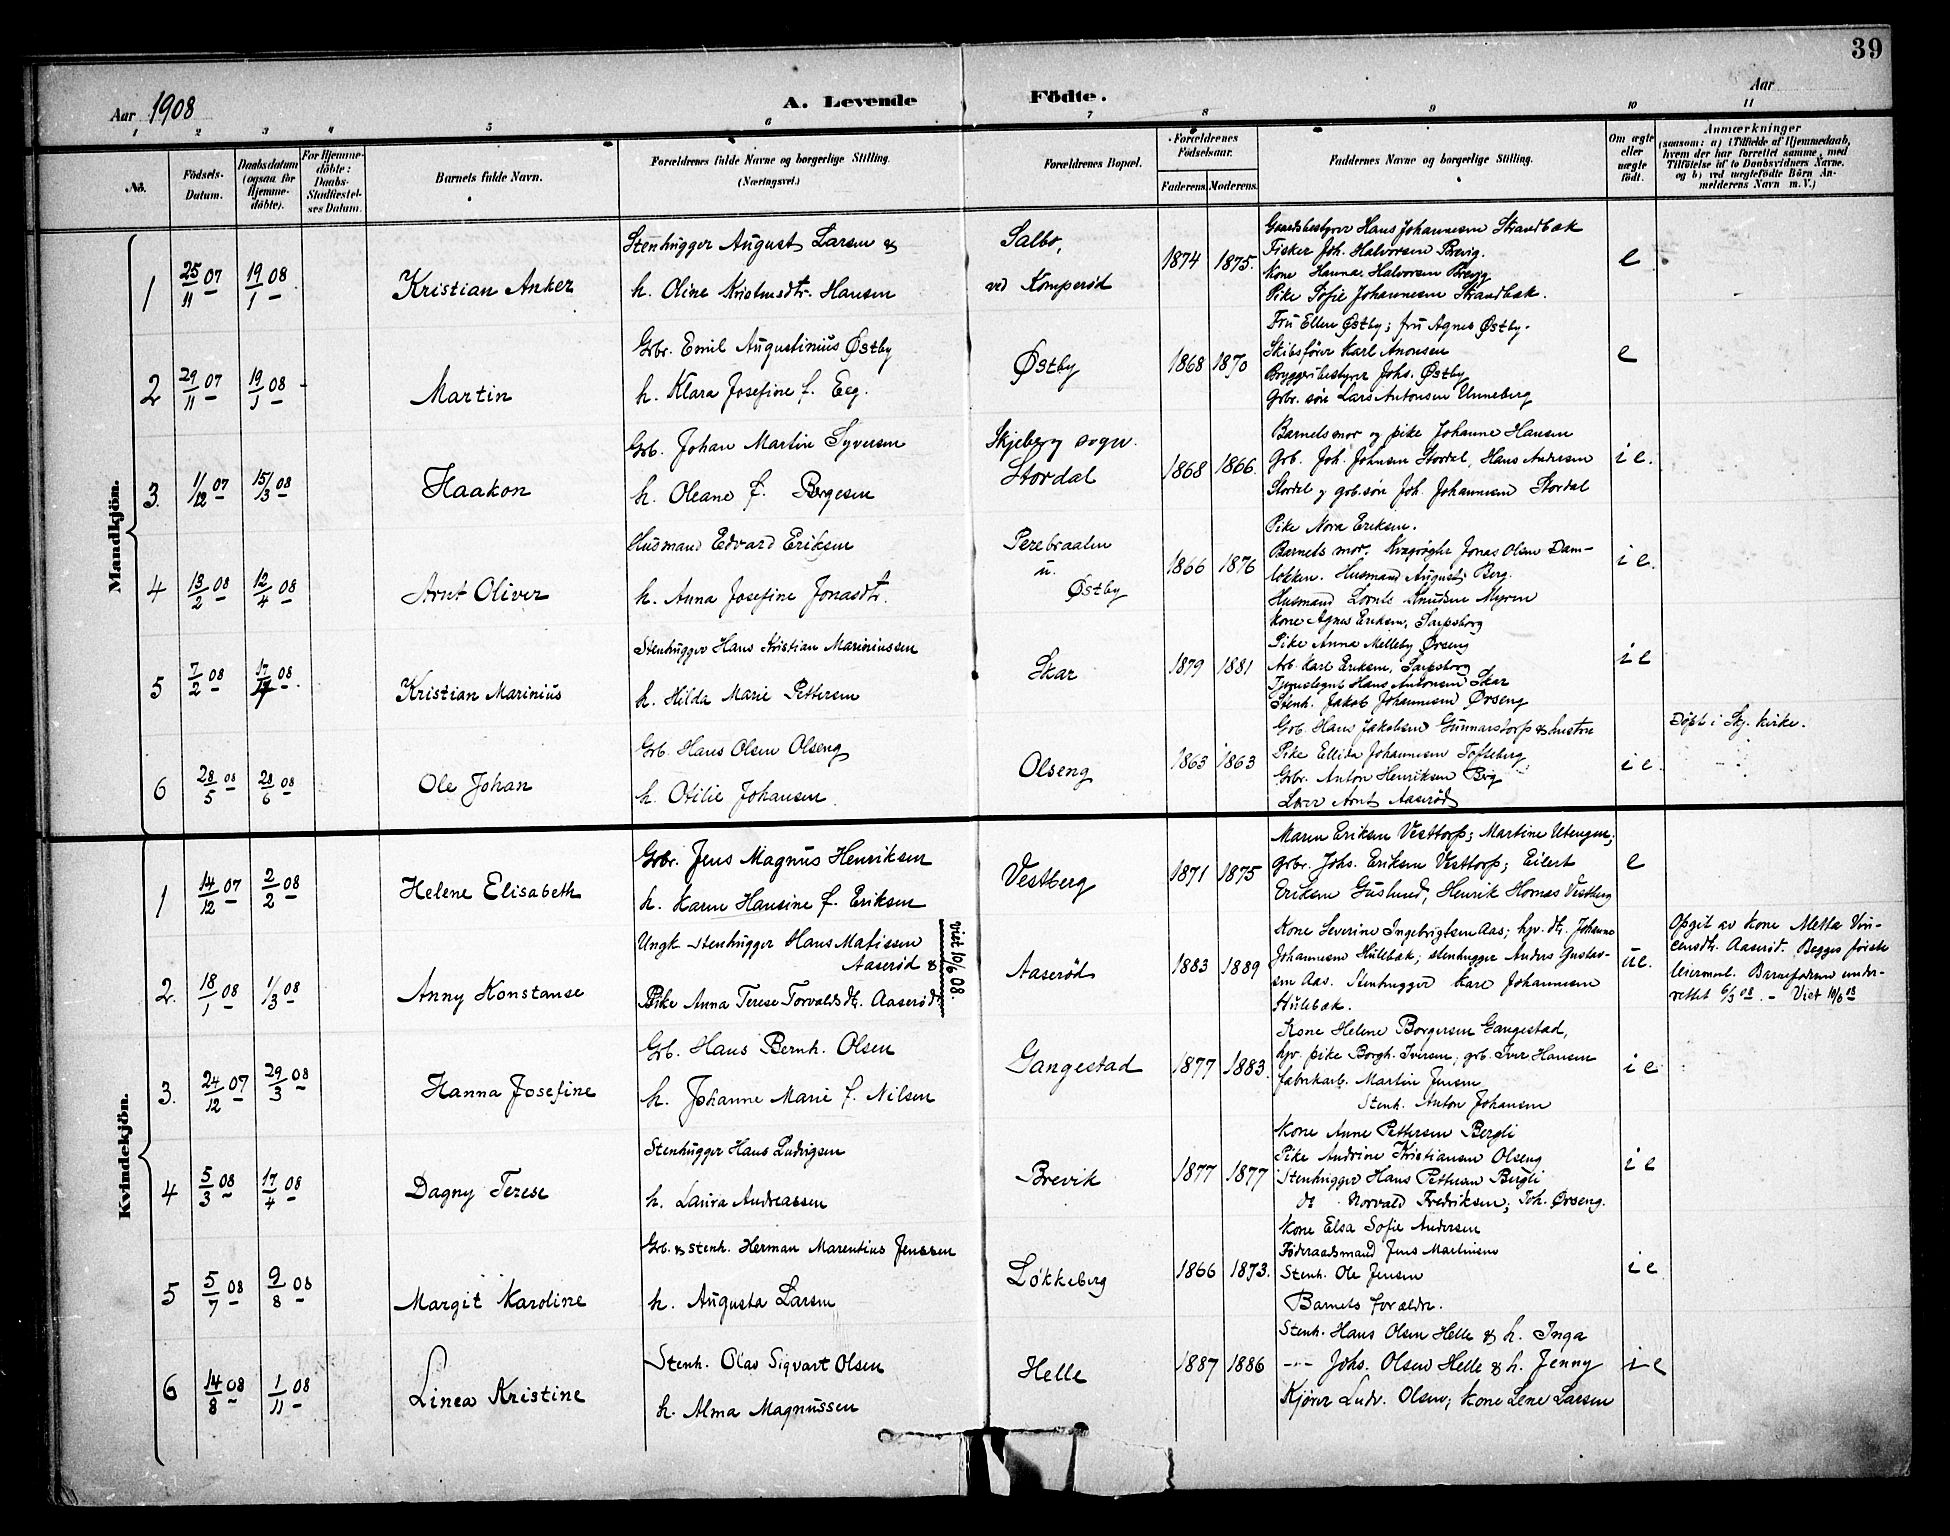 39
Aar 1908
A. Levende Födte.
Aar
1 2 3 4 5 6 7 8 9 10 11
No.
Födsels-Datum.
Daabsdatum (ogsaa for Hjemme-döbte).
For Hjemme-döbte: Daabs-Stadfæstel-ses Datum.
Barnets fulde Navn.
Forældrenes fulde Navne og borgerlige Stilling. (Næringsvei.)
Forældrenes Bopæl.
Forældrenes Födselsaar.
Faderens. Moderens.
Faddernes Navne og borgerlige Stilling.
Om ægte eller uægte födt.
Anmærkninger
(saasom: a) i Tilfælde af Hjemmedaab,
hvem der har forrettet samme, med
Tilföielse af to Daabsvidners Navne.
og b) ved uægtefödte Börn An-
melderens Navn m. V.)
Mandkjön.
1 25/11 07 19/1 08 Kristian Anker
Stenhugger August Larsen &
h. Oline Kristensdtr. Hansen
Salbo,
ved Komperød
1874 1875.
Gaardsbestyrer Hans Johannesen Strandbæk
Fisker Joh. Halvorsen Brevig.
Kone Hanna Halvorsen Brevig
Pike Sofie Johannesen Strandbæk.
e
2 29/11 07 19/1 08 Martin
Grbr. Emil Augustinius Østby
h. Klara Josefine f. Eeg.
Østby
1868 1870
Fru Ellen Østby; fru Agnes Østby.
Skibsfører Karl Anonsen
Bryggeribestyrer Johs. Østby
Grbr. søn Lars Antonsen Unneberg
e
3. 1/12 07 15/3 08 Haakon
Grb. Johan Martin Syversen
h. Oleane f. Børgesen
Skjeberg sogn.
Stordal
1868 1866.
Barnets mor og pike Johanne Hansen
Grb. Joh. Johnsen Stordal, Hans Andersen
Stordal og grb. søn Joh. Johannesen Stordal
i e.
4 13/2 08 12/4 08 Arnt Oliver
Husmand Edvard Eriksen
h. Anna Josefine Jonasdtr.
Perebraaten
u.
Østby
1866 1876
Pike Nora Eriksen.
Barnets mor. Kvægrøgter Jonas Olsen Dam-
løkken. Husmand August Berg.
Husmand Lornts Knudsen Myren
i e.
5 7/2 08 17/4 08 Kristian Marinius
Stenhugger Hans Kristian Mariniussen
h. Hilda Marie Pettersen
Skar
1879 1881
Kone Agnes Eriksen, Sarpsborg
Pike Anna Melleby Ørseng
Arb Karl Eriksen, Sarpsborg
Tjenestegut Hans Antonsen Skar
Stenh. Jakob Johannesen Ørseng
i e
6 28/5 08 28/6 08 Ole Johan
Grb. Hans Olsen Olseng
h. Otilie Johansen
Olseng
1863 1863
Grb. Hans Jakobsen Gunnarstorp & hustru
Pike Ellida Johannesen Tofteberg
Grbr. Anton Henriksen Berg
Lærer Arnt Aaserød
i e.
Døbt i Skj. kirke.
Kvindekjön.
1 14/12 07 2/2 08 Helene Elisabeth
Grbr. Jens Magnus Henriksen
h. Karen Hansine f. Eriksen
Vestberg
1871 1875
Maren Eriksen Vesttorp; Martine Utengen;
grbr. Johs. Eriksen Vesttorp; Eilert
Eriksen Guslund, Henrik Hornæs Vestberg
e
2. 18/1 08 1/3 08 Anny Konstanse
Ungk. stenhugger Hans Matissen
Aaserød &
Pike Anna Terese Torvaldsdtr. Aaserød.
viet 10/6 08.
Aaserød
1883 1889
Kone Severine Ingebrigtsen Aas; hjv. dtr. Johanne
Johannesen Hulebæk; stenhugger Anders Gustav-
sen Aas. Stenhugger Karl Johannesen
Hulebæk.
ue.
Opgit av kone Mette Vin-
censdtr. Aaserød. Begges første
leiermaal. Barnefaderen under-
rettet 6/3 08. – Viet 10/6 08
3. 24/12 07 29/3 08 Hanna Josefine
Grb. Hans Bernh. Olsen
h. Johanne Marie f. Nilsen
Gangestad
1877 1883.
Kone Helene Borgersen Gangestad,
hjv. pike Borgh. Iversen, grb. Iver Hansen
fabrikarb. Martin Jensen
Stenh. Anton Johansen
i e
4 5/3 08 17/4 08 Dagny Terese
Stenhugger Hans Ludvigsen
h. Laura Andreassen
Brevik
1877 1877
Kone Anne Pettersen Bergli
Pike Andrine Kristiansen Olseng
Stenhugger Hans Pettersen Bergli
do Norvald Fredriksen; Joh. Ørseng.
i e
5 5/7 08 9/8 08 Margit Karoline
Grb. & stenh. Herman Marentius Jenssen
h. Augusta Larsen
Løkkeberg
1866 1873.
Kone Elsa Sofie Andersen
Føderaadsmand Jens Martinsen
Stenh. Ole Jensen
Barnets forældre.
i e
6 14/8 08 1/11 08 Linea Kristine
Stenh. Olav Sigvart Olsen
h. Alma Magnussen
Helle
1887 1886
Stenh. Hans Olsen Helle & h. Inga
--- Johs. Olsen Helle & h. Jenny
Kjører Ludv. Olsen; Kone Lene Larsen
i e